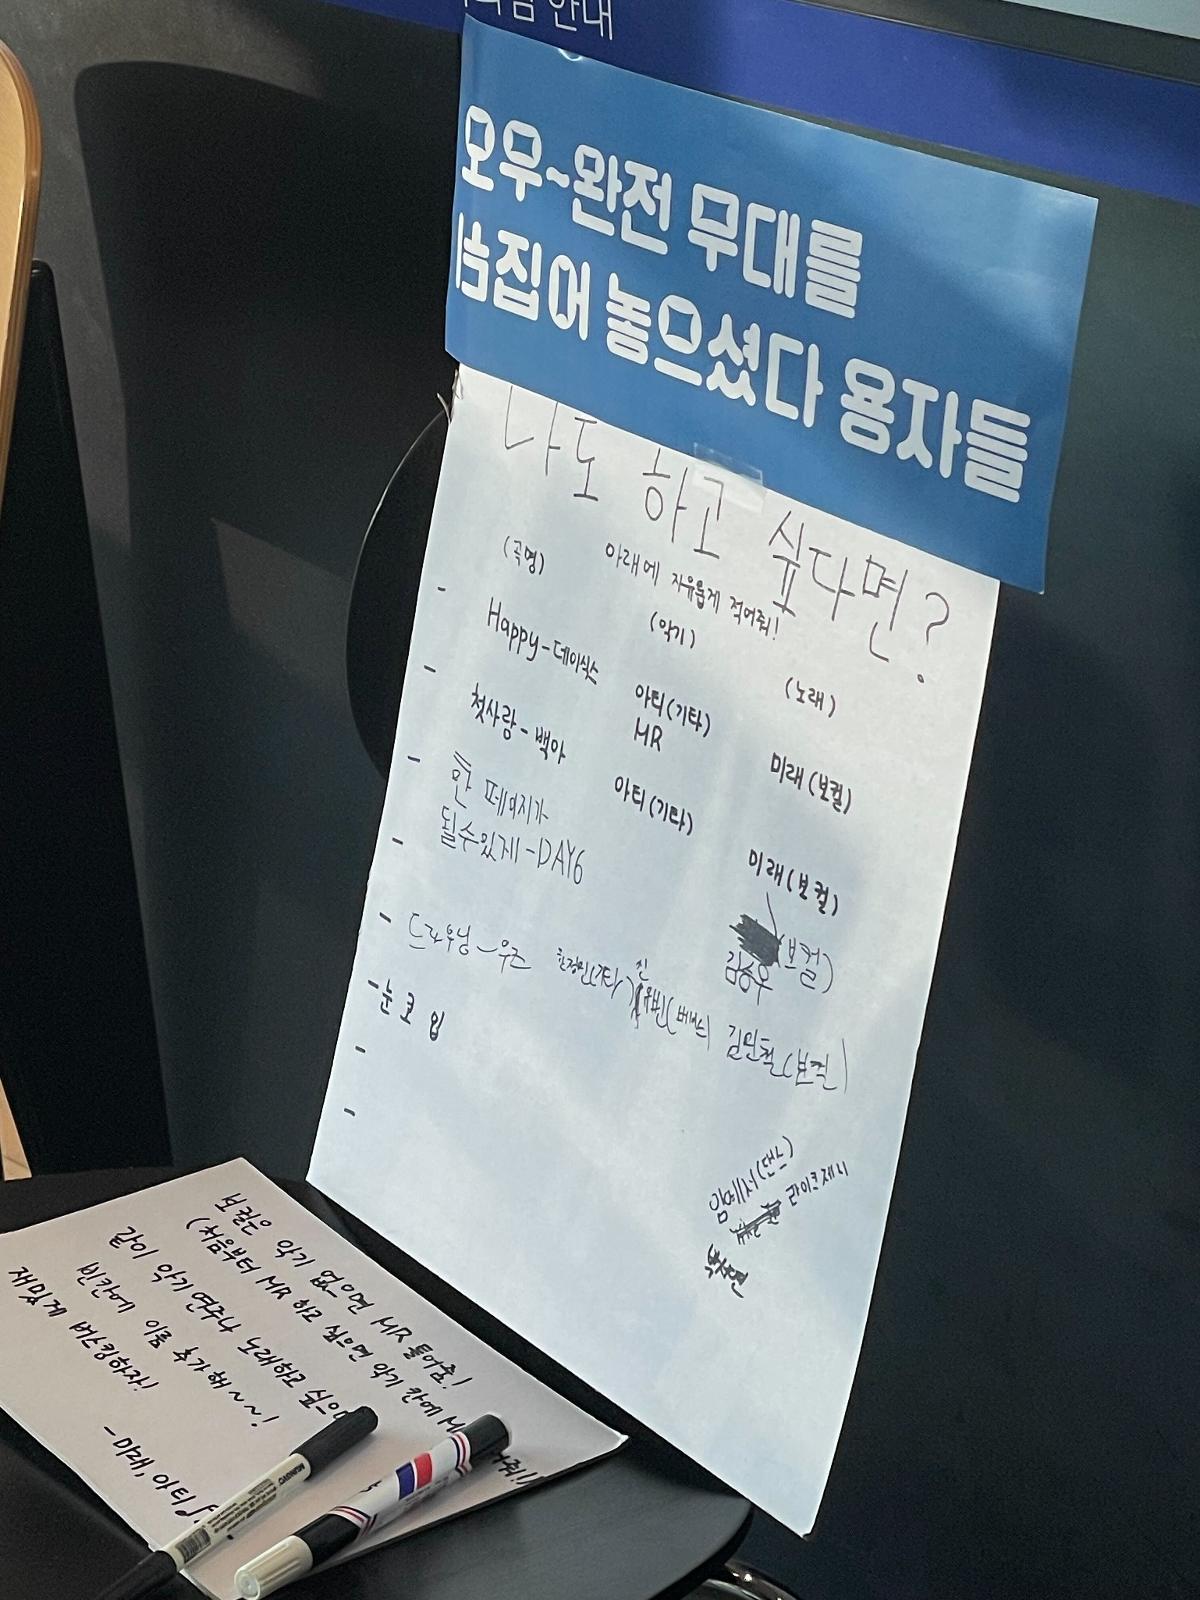 안내
오우~완전 무대를
집어 놓으셨다 용자들
나도 하고 싶다면?
아래에 자유롭게 적어줘!
(곡명) (악기) (노래)
- Happy - 데이식스 아티(기타) 미래(보컬)
MR
- 첫사랑 - 백아 아티(기타) 미래(보컬)
- 한 페이지가
될수있게 - DAY6 (보컬)
김승우
- 드라우닝 - 우즈 한정민(기타) 빈(베이스) 김민철(보컬)
- 눈 코 입
-
-
(댄스)
라이크제시
보컬은 악기 없으면 MR 틀어줌!
(처음부터 MR 하고 싶으면 악기 칸에
같이 악기 연주나 노래하고
빈칸에 이름 추가해~~!
재밌게 버스킹하자!
- 미래, 아티
MUNGYO